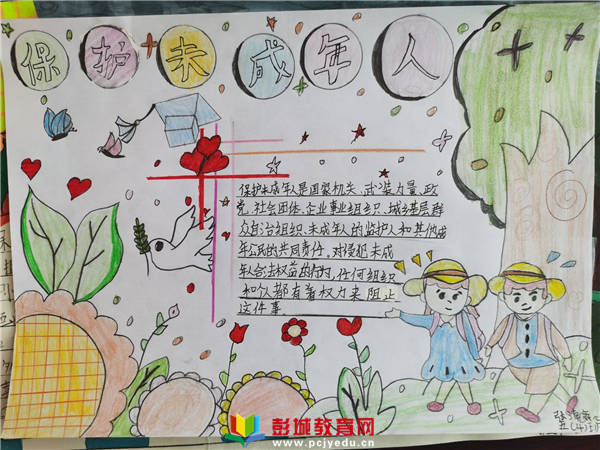 保护未成年人
保护未成年人是国家机关、武装力量、政
党、社会团体、企业事业组织、城乡基层群
众自治组织、未成年人的监护人和其他成
年公民的共同责任，对侵犯未成
年人合法权益的行为，任何组织
和个人都有着权力来阻止
这件事
五(4)班
彭城教育网
www.pcjyedu.cn